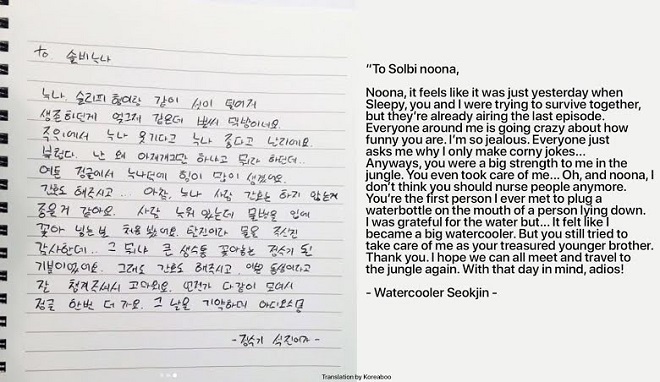 to 솔비누나
누나. 슬리피 형이랑 같이 셋이 떨어져
생존하던게 엊그제 같은데 벌써 막방이네요.
주위에서 누나 웃기다고 누나 좋다고 난리에요.
부럽다. 난 왜 아재개그만 하냐고 뭐라 하던데..
여튼 정글에서 누나한테 힘이 많이 생겼어요.
간호도 해주시고... 아참, 누나 사람 간호는 하지 않는게
좋을거 같아요. 사람 누워있는데 물병을 입에
꽂아 넣는 분 처음 봤어요. 물은 주신건
감사한데... 그 뭐냐 큰 생수통 꽂아놓은 정수기 된
기분이었어요. 그래도 간호도 해주시고, 이쁜 동생이라고
잘 챙겨주셔서 고마워요. 언젠가 다같이 모여서
정글 한번 더 가요. 그 날을 기약하며 아디오스
- 정수기 석진이가 -
"To Solbi noona,
Noona, it feels like it was just yesterday when
Sleepy, you and I were trying to survive together,
but they're already airing the last episode.
Everyone around me is going crazy about how
funny you are. I'm so jealous. Everyone just
asks me why I only make corny jokes...
Anyways, you were a big strength to me in the
jungle. You even took care of me... Oh, and noona, I
don't think you should nurse people anymore.
You're the first person I ever met to plug a
waterbottle on the mouth of a person lying down.
I was grateful for the water but... It felt like I
became a big watercooler. But you still tried to
take care of me as your treasured younger brother.
Thank you. I hope we can all meet and travel to
the jungle again. With that day in mind, adios!
- Watercooler Seokjin -
Translation by Koreaboo